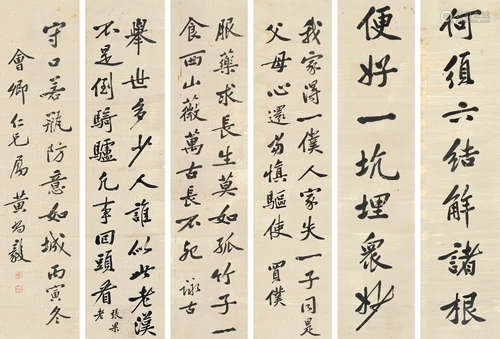 何須六結解諸根
便好一坑埋衆妙
我家得一僕人家失一子同是
父母心還當慎驅使 買僕
服藥求長生莫如孤竹子一
食西山薇萬古長不死 詠古
舉世多少人誰似此老漢
不是倒騎驢凡事回頭看 張果
老
守口若瓶防意如城丙寅冬
會卿仁兄屬 黃尚毅